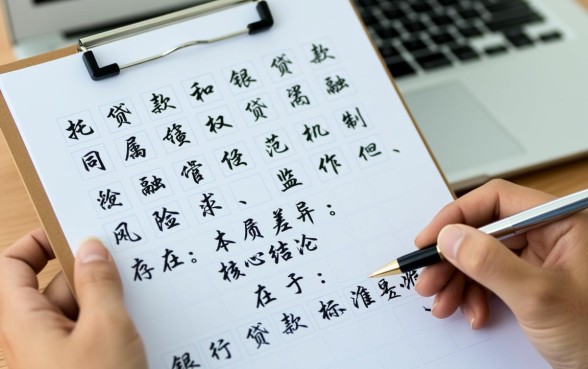 托贷款和银贷款
同属债权贷融
融管径范机制
风险求、监作但、
存在：本质差异：
核心结论
在于：
银行贷款标准是